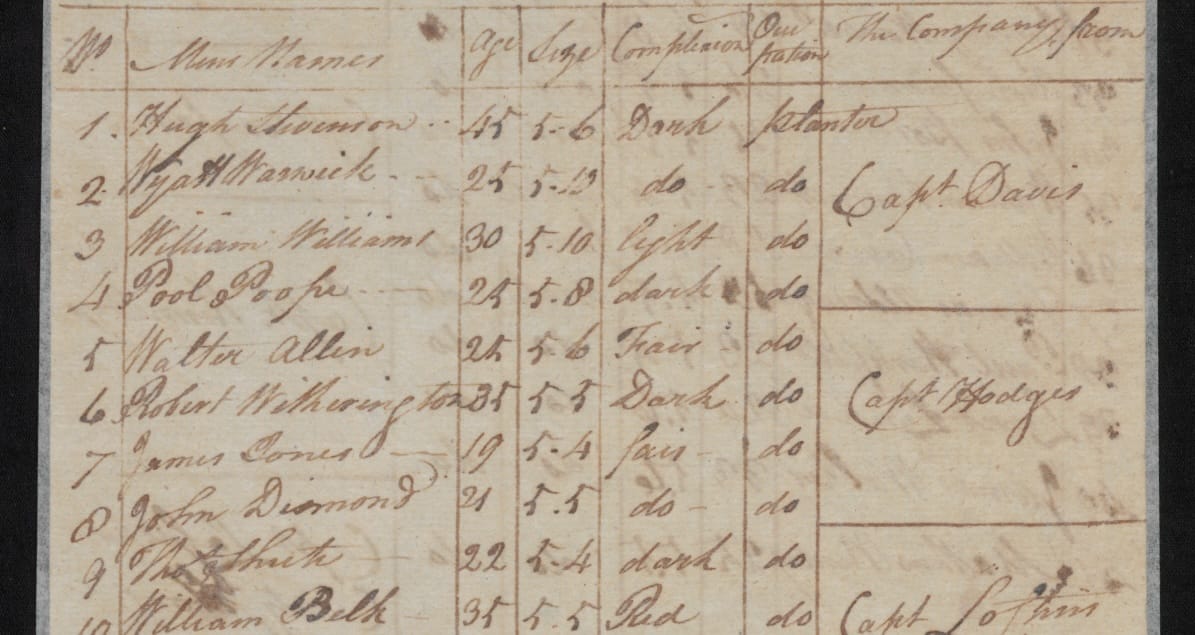 No Mens Names Age Size Complexion Occupation The Company from
1. Hugh Stevenson 45 5-6 Dark planter
2. Wyatt Warwick 25 5-10 do do Capt. Davis
3 William Williams 30 5-10 light do
4 Pool Poope 25 5-8 dark do
5 Walter Allin 25 5-6 Fair do
6 Robert Witherington 35 5-5 Dark do Capt Hodges
7 James Jones 19 5-4 fair do
8 John Diamond 21 5.5 do do
9 Thos Shute 22 5-4 dark do
10 William Belk 35 5.5 Red do Capt Loftins